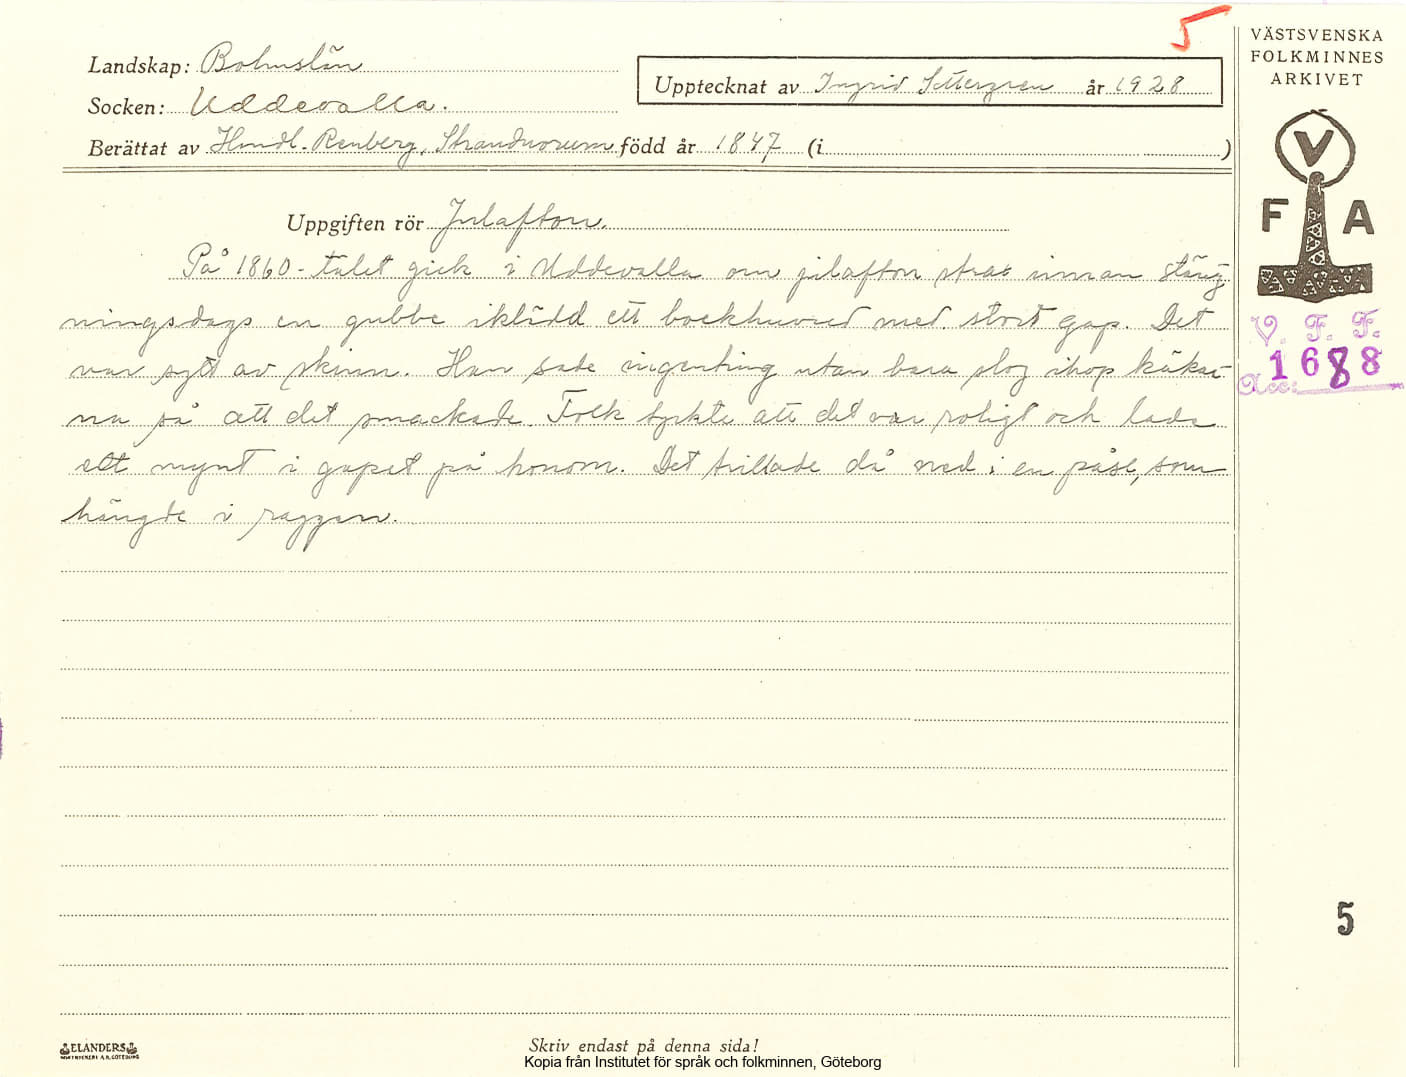 5
VÄSTSVENSKA
FOLKMINNES
ARKIVET
Landskap: Bohuslän
Upptecknat av Ingrid Settergren år 1928
Socken: Uddevalla.
Berättat av Handl. Renberg, Strandnorum född år 1847 (i )
V
F A
Uppgiften rör Julafton.
På 1860-talet gick i Uddevalla om julafton strax innan stäng-
ningsdags en gubbe iklädd ett bockhuvud med stort gap. Det
var sytt av skinn. Han sade ingenting utan bara slog ihop käkar-
na så att det smackade. Folk tyckte att det var roligt och lade
ett mynt i gapet på honom. Det trillade då ned i en påse, som
hängde i raggen.
V. F. F.
1688
Acc:
5
ELANDERS
Skriv endast på denna sida!
Kopia från Institutet för språk och folkminnen, Göteborg